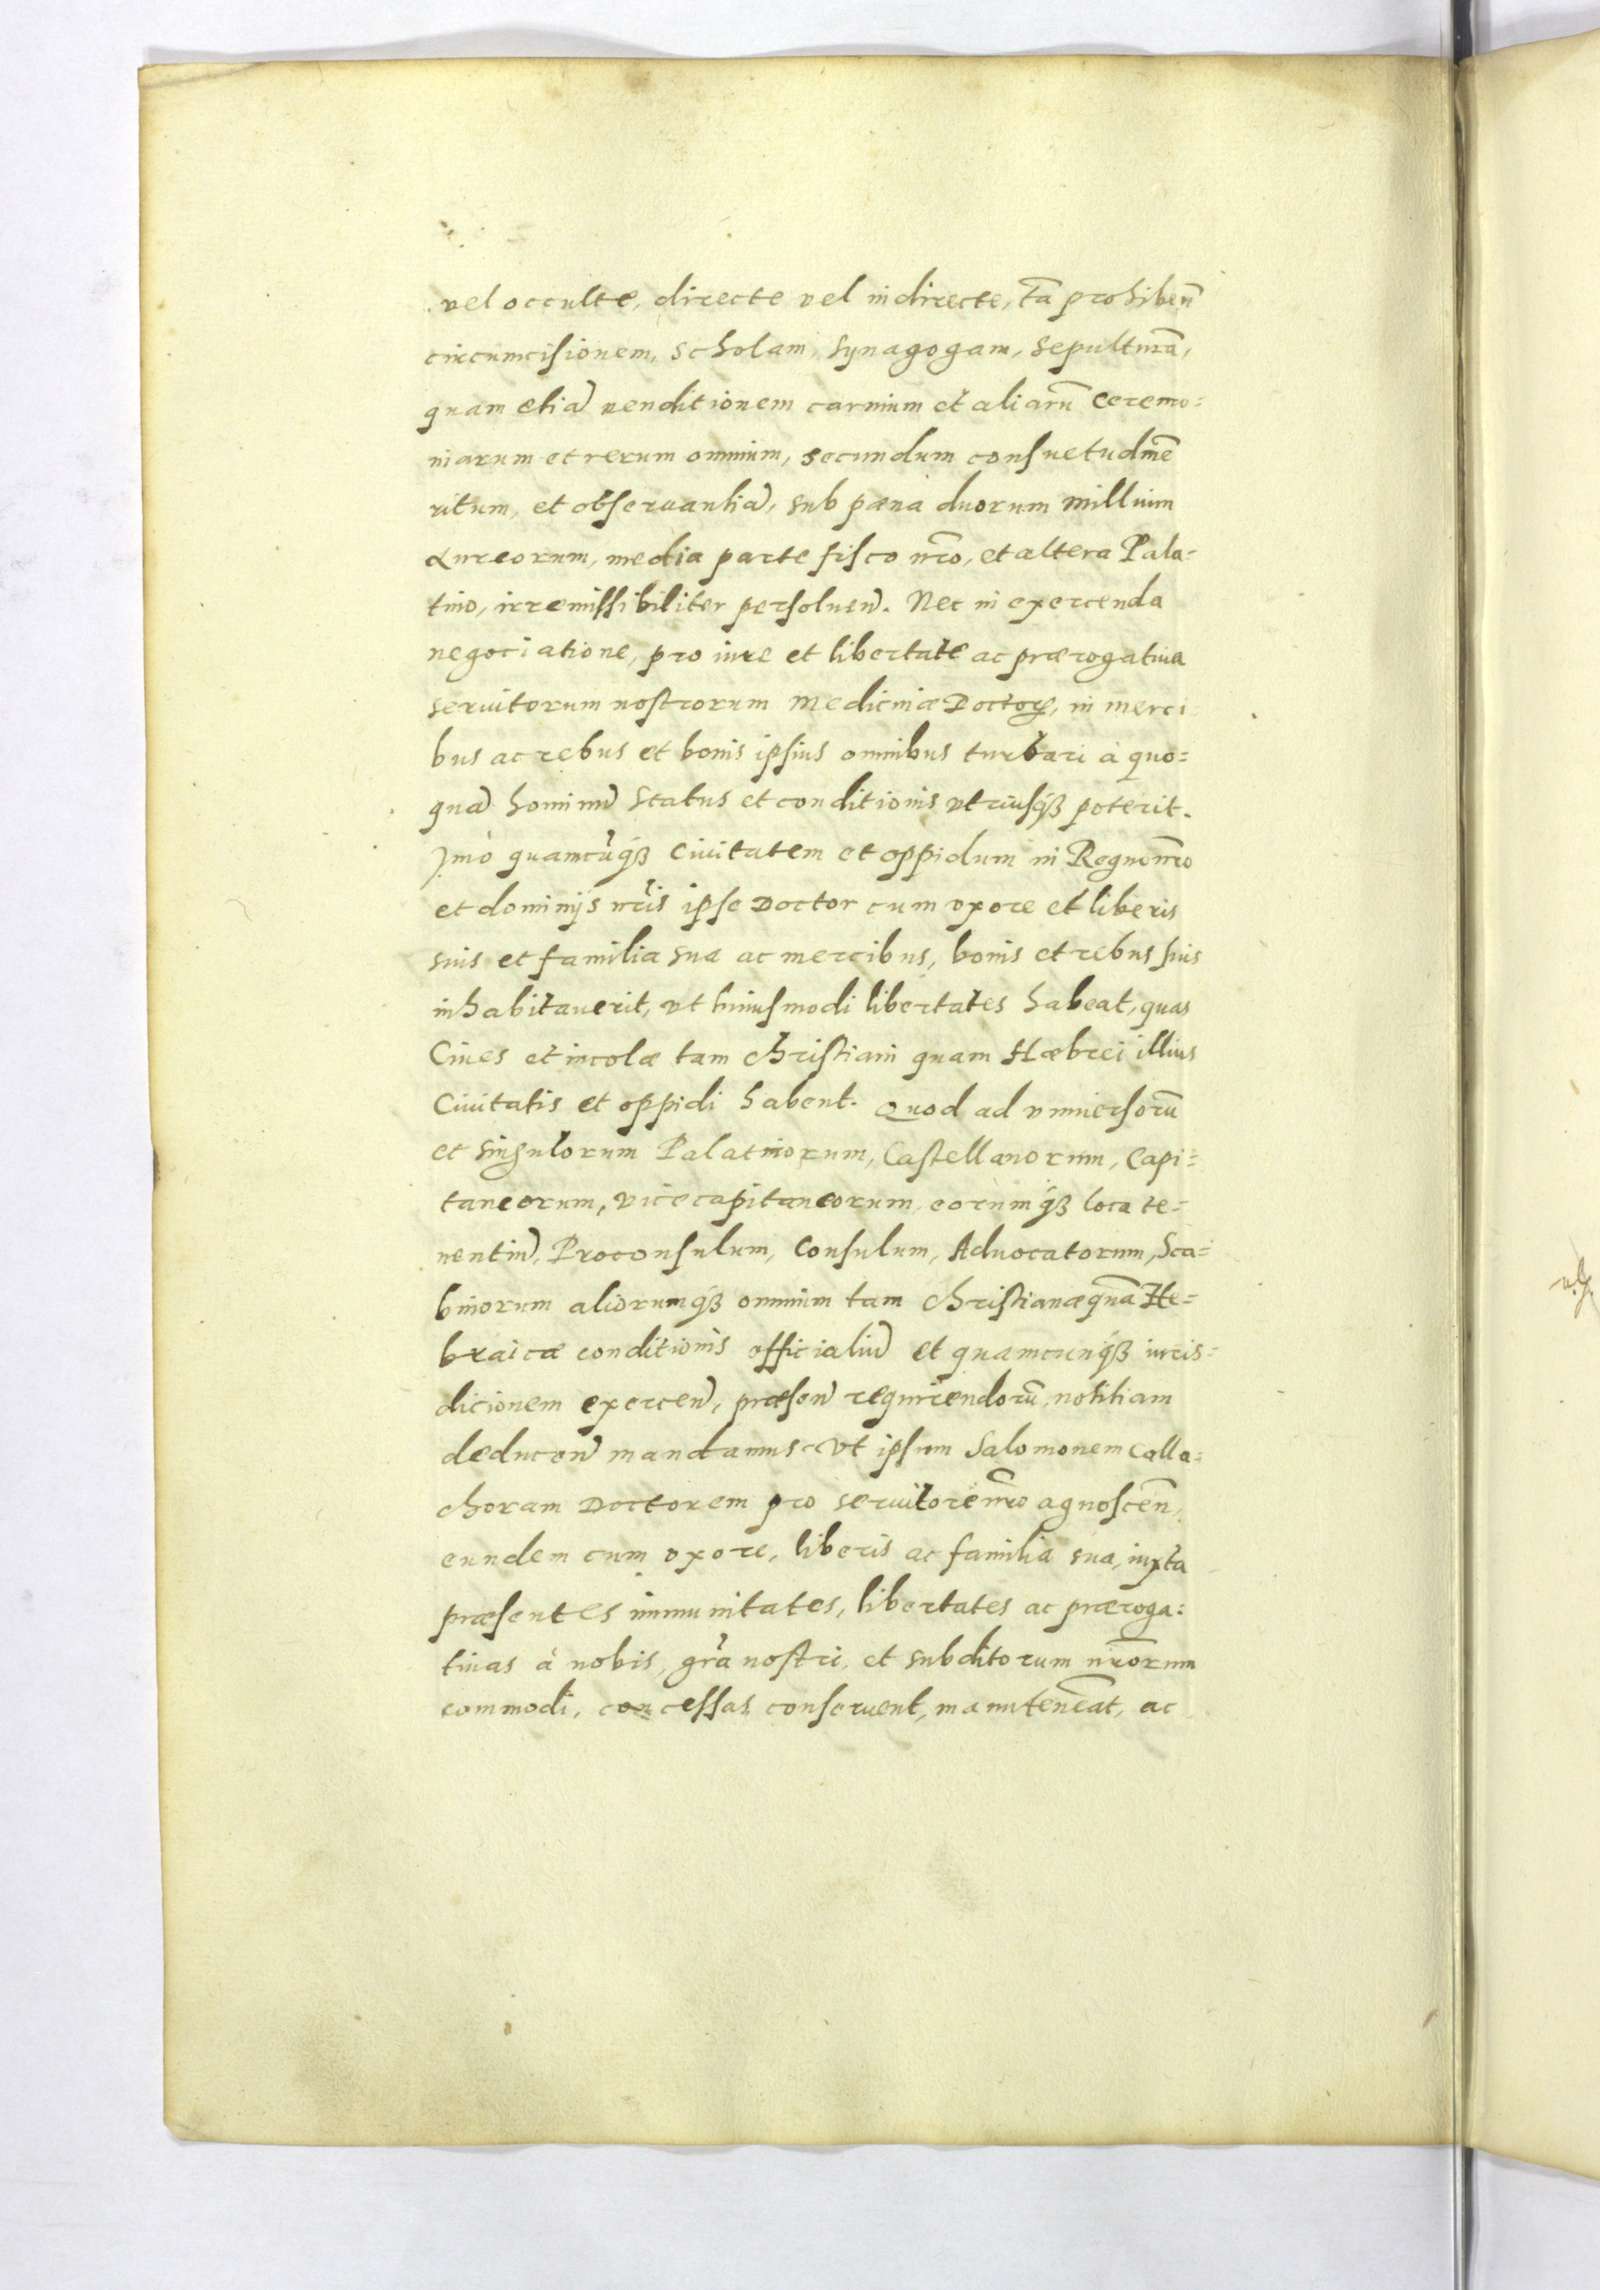 vel occulte, directe vel indirecte, tã prohibeñ
circumcisionem, scholam, synagogam, sepulturã,
quam etiã venditionem carnium et aliarũ ceremo=
niarum et rerum omnium, secundum consuetudinẽ
ritum, et observantiã, sub pæna duorum millium
Aureorum, media parte fisco nr̃o, et altera Pala=
tino, irremissibiliter persoluen̄. Nec in exercenda
negociatione, pro iure et libertate ac prærogatiua
seruitorum nostrorum Medicinæ Doctoꝝ, in merci
bus ac rebus et bonis ipsius omnibus turbari à quo=
quã hominũ status et conditionis vtriusqꝫ poterit.
Imò quamcũqꝫ Ciuitatem et oppidum in Regno nr̃o
et dominijs nr̃is ipse Doctor cum vxore et liberis
suis et familia sua ac mercibus, bonis et rebus suis
inhabitauerit, vt huiusmodi libertates habeat, quas
Ciues et incolæ tam Christiani quam Hæbrei illius
Ciuitatis et oppidi habent. Quod ad vniuersorũ
et singulorum Palatinorum, Castellanorum, Capi=
taneorum, vicecapitaneorum, eorumqꝫ loca te=
nentiũ, Proconsulum, Consulum, Aduocatorum, Sca=
binorum aliorumqꝫ omnium tam Christianæ quã He=
braicæ conditionis officialiũ et quamcunqꝫ iuris=
dicionem exercen̄, præsen̄ requirendorũ, notitiam
deducen̄ mandamus. Vt ipsum Salomonem Calla=
choram Doctorem pro seruitore nr̃o agnoscen̄,
eundem cum vxore, liberis ac familia sua, iuxta
præsentes immunitates, libertates ac præroga=
tiuas à nobis, gr̃a nostri, et subditorum nr̃orum
commodi, concessas conseruent, manuteneãt, ac